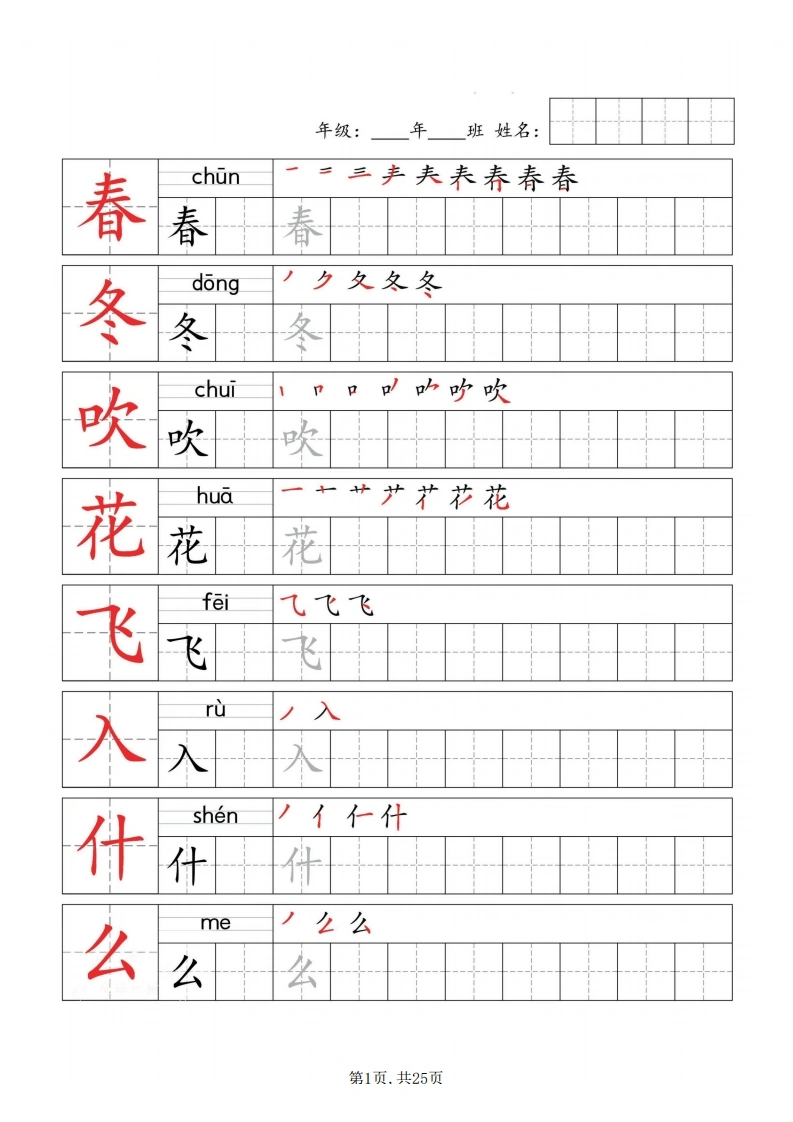 年级：____年____班 姓名：
春 chūn 一 二 三 春
春 春
冬 dōng 丿 ク 夂 冬 冬
冬 冬
吹 chuī 丨 口 口 吹
吹 吹
花 huā 一 十 艹 花
花 花
飞 fēi 乁 飞 飞
飞 飞
入 rù 丿 入
入 入
什 shén 丿 亻 什 什
什 什
么 me 丿 么 么
么 么
第1页，共25页